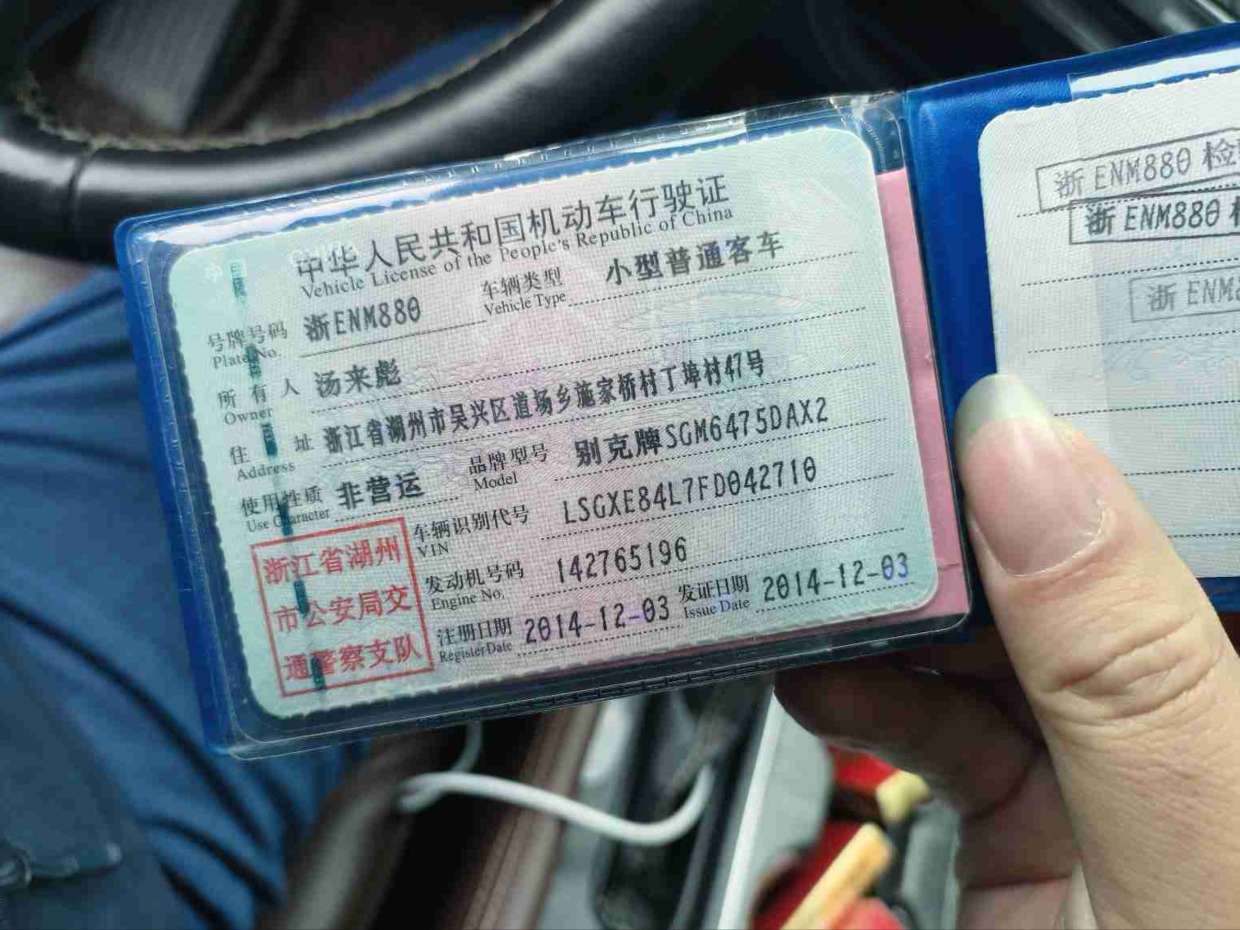 中华人民共和国机动车行驶证
Vehicle License of the People's Republic of China
号牌号码 浙ENM880 车辆类型 小型普通客车
Plate No. Vehicle Type
所有人 汤来彪
Owner
住址 浙江省湖州市吴兴区道场乡施家桥村丁埠村47号
Address
使用性质 非营运 品牌型号 别克牌SGM6475DAX2
Use Character Model
浙江省湖州
市公安局交
通警察支队
车辆识别代号 LSGXE84L7FD042710
VIN
发动机号码 142765196
Engine No.
注册日期 2014-12-03 发证日期 2014-12-03
Register Date Issue Date
浙ENM880 检
浙ENM880
浙ENM8